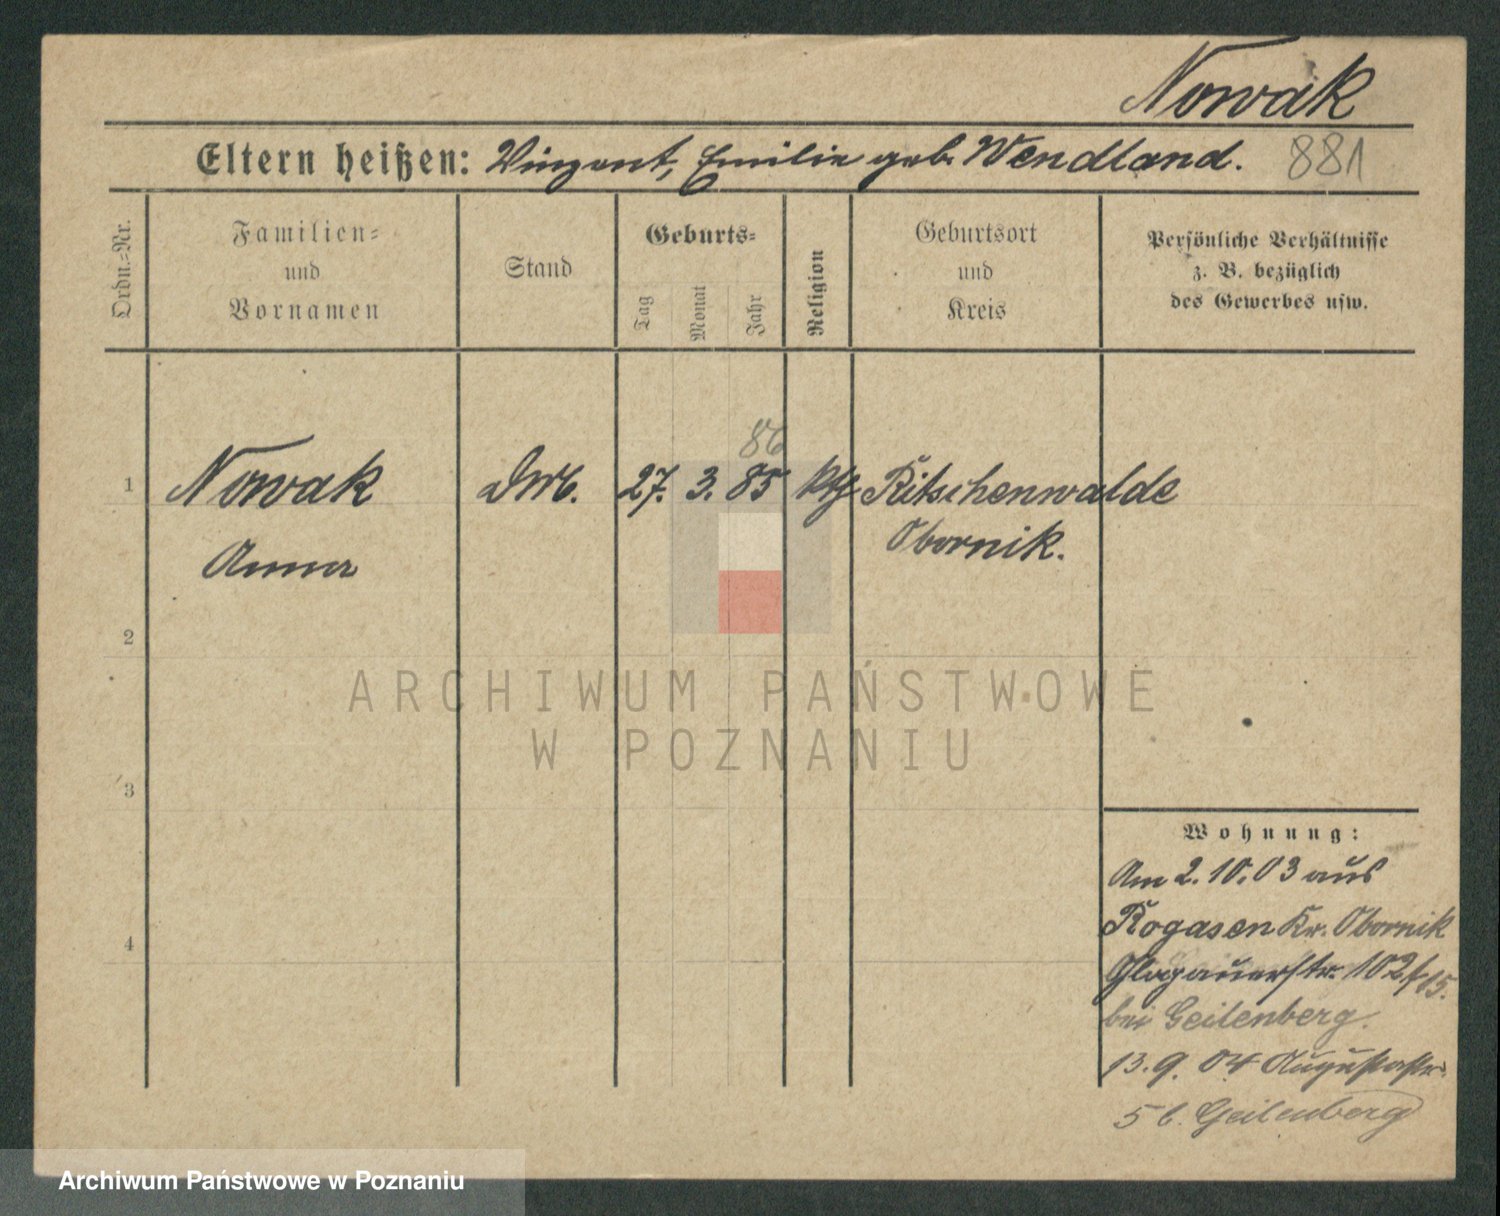 Nowak
Eltern heißen: Vinzent, Emilie geb. Wendland. 881
Ordn.=Nr.
Familien=
und
Vornamen
Stand
Geburts=
Tag
Monat
Jahr
Religion
Geburtsort
und
Kreis
Persönliche Verhältnisse
z. B. bezüglich
des Gewerbes usw.
86
1 Nowak 27. 3. 85 kth Ritschenwalde
Anna Obornik.
2
ARCHIWUM PAŃSTWOWE
W POZNANIU
3
Wohnung:
Am 2.10.03 aus
Rogasen Kr. Obornik
4
Glogauerstr. 102
bei Geilenberg.
13.9.04 Augustastr.
5 b. Geilenberg
Archiwum Państwowe w Poznaniu